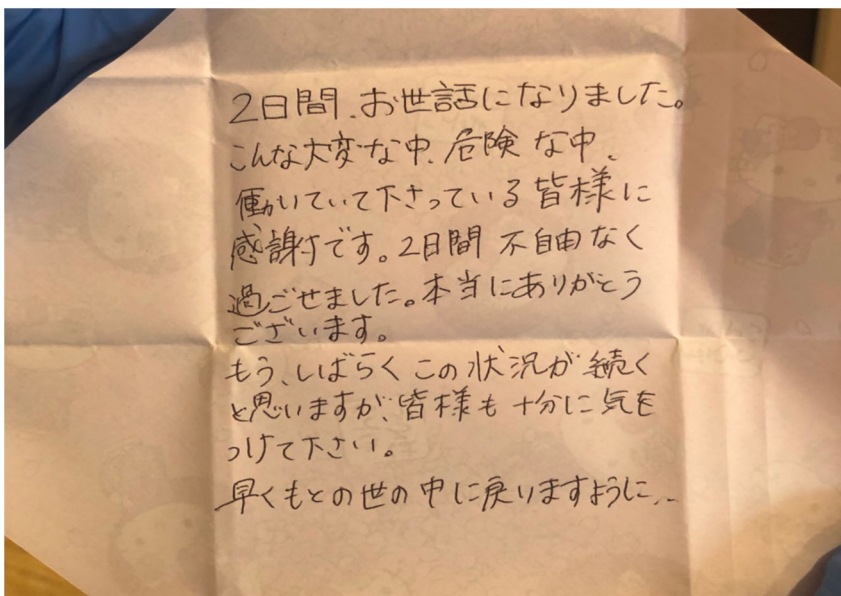 2日間、お世話になりました。
こんな大変な中、危険な中、
働いていて下さっている皆様に
感謝です。2日間 不自由なく
過ごせました。本当にありがとう
ございます。
もう、しばらくこの状況が続く
と思いますが、皆様も十分に気を
つけて下さい。
早くもとの世の中に戻りますように、、